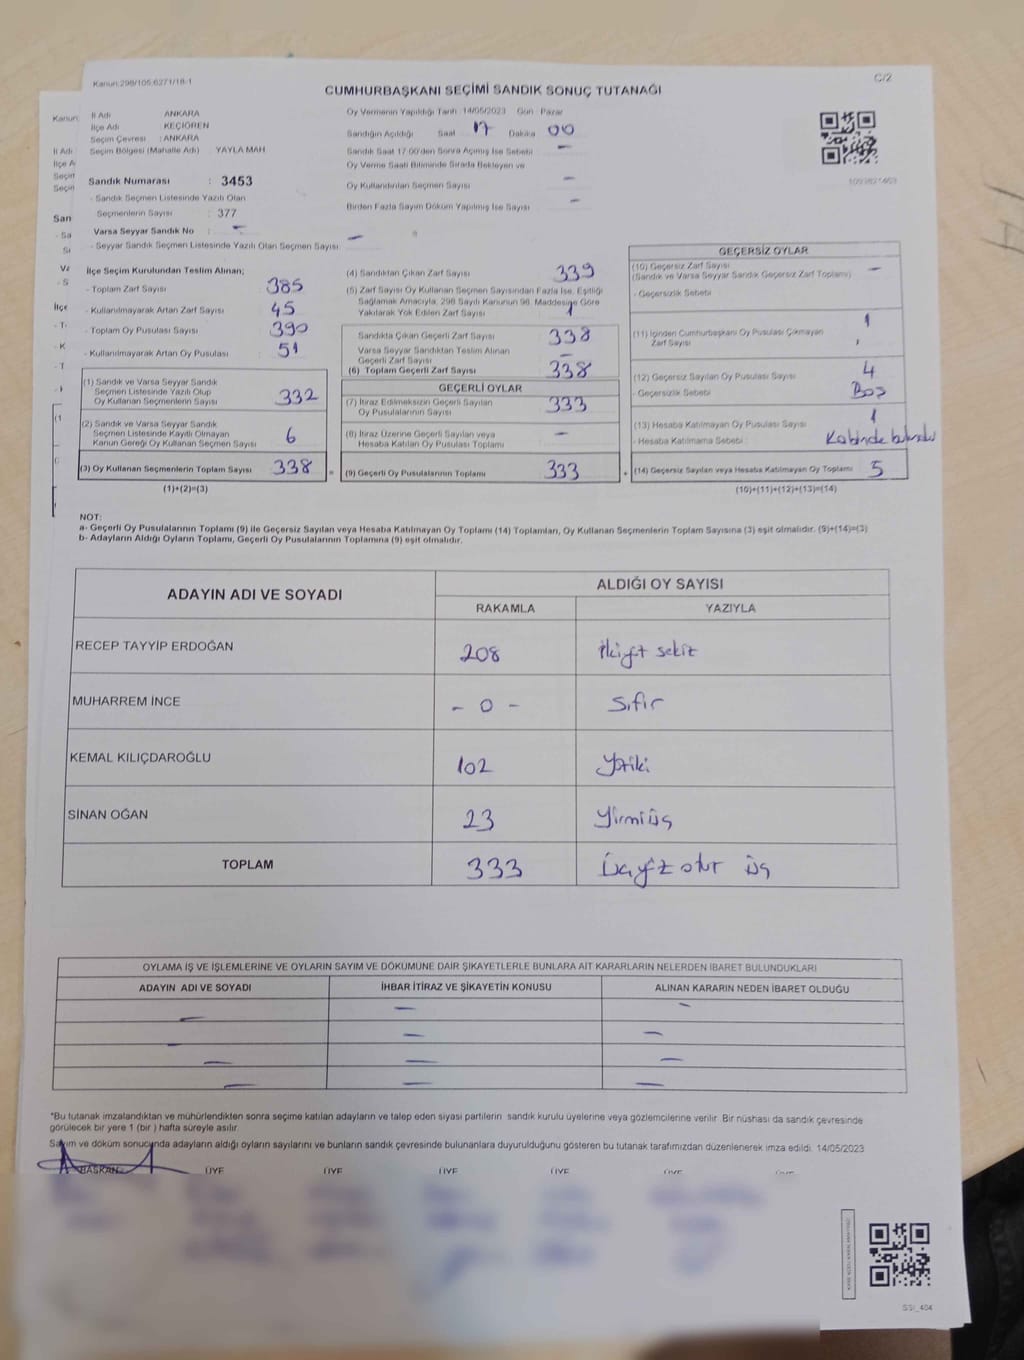 Kanun:298/105,6271/18-1
C/2
CUMHURBAŞKANI SEÇİMİ SANDIK SONUÇ TUTANAĞI
İl Adı ANKARA
İlçe Adı KEÇİÖREN
Seçim Çevresi : ANKARA
Seçim Bölgesi (Mahalle Adı) YAYLA MAH
Sandık Numarası : 3453
- Sandık Seçmen Listesinde Yazılı Olan
Seçmenlerin Sayısı : 377
Varsa Seyyar Sandık No : -
- Seyyar Sandık Seçmen Listesinde Yazılı Olan Seçmen Sayısı: -
Oy Vermenin Yapıldığı Tarih 14/05/2023 Gün Pazar
Sandığın Açıldığı Saat 17 Dakika 00
Sandık Saat 17.00'den Sonra Açılmış İse Sebebi -
Oy Verme Saati Bitiminde Sırada Bekleyen ve
Oy Kullandırılan Seçmen Sayısı -
Birden Fazla Sayım Döküm Yapılmış İse Sayısı -
İlçe Seçim Kurulundan Teslim Alınan;
- Toplam Zarf Sayısı : 385
- Kullanılmayarak Artan Zarf Sayısı : 45
- Toplam Oy Pusulası Sayısı : 390
- Kullanılmayarak Artan Oy Pusulası : 51
(1) Sandık ve Varsa Seyyar Sandık
Seçmen Listesinde Yazılı Olup
Oy Kullanan Seçmenlerin Sayısı : 332
(2) Sandık ve Varsa Seyyar Sandık
Seçmen Listesinde Kayıtlı Olmayan
Kanun Gereği Oy Kullanan Seçmen Sayısı : 6
(3) Oy Kullanan Seçmenlerin Toplam Sayısı : 338
(1)+(2)=(3)
(4) Sandıktan Çıkan Zarf Sayısı 339
(5) Zarf Sayısı Oy Kullanan Seçmen Sayısından Fazla İse, Eşitliği
Sağlamak Amacıyla, 298 Sayılı Kanunun 98. Maddesine Göre
Yakılarak Yok Edilen Zarf Sayısı 1
Sandıkta Çıkan Geçerli Zarf Sayısı 338
Varsa Seyyar Sandıktan Teslim Alınan
Geçerli Zarf Sayısı -
(6) Toplam Geçerli Zarf Sayısı 338
GEÇERLİ OYLAR
(7) İtiraz Edilmeksizin Geçerli Sayılan
Oy Pusulalarının Sayısı 333
(8) İtiraz Üzerine Geçerli Sayılan veya
Hesaba Katılan Oy Pusulası Toplamı -
= (9) Geçerli Oy Pusulalarının Toplamı 333
GEÇERSİZ OYLAR
(10) Geçersiz Zarf Sayısı
(Sandık ve Varsa Seyyar Sandık Geçersiz Zarf Toplamı) -
- Geçersizlik Sebebi
(11) İçinden Cumhurbaşkanı Oy Pusulası Çıkmayan
Zarf Sayısı
(12) Geçersiz Sayılan Oy Pusulası Sayısı 4
- Geçersizlik Sebebi Boş
(13) Hesaba Katılmayan Oy Pusulası Sayısı 1
- Hesaba Katılmama Sebebi : Kabinde bulundu
+ (14) Geçersiz Sayılan veya Hesaba Katılmayan Oy Toplamı 5
(10)+(11)+(12)+(13)=(14)
NOT:
a- Geçerli Oy Pusulalarının Toplamı (9) ile Geçersiz Sayılan veya Hesaba Katılmayan Oy Toplamı (14) Toplamları, Oy Kullanan Seçmenlerin Toplam Sayısına (3) eşit olmalıdır. (9)+(14)=(3)
b- Adayların Aldığı Oyların Toplamı, Geçerli Oy Pusulalarının Toplamına (9) eşit olmalıdır.
ADAYIN ADI VE SOYADI ALDIĞI OY SAYISI
RAKAMLA YAZIYLA
RECEP TAYYİP ERDOĞAN 208 ikiyüz sekiz
MUHARREM İNCE - 0 - Sıfır
KEMAL KILIÇDAROĞLU 102 Yüziki
SİNAN OĞAN 23 Yirmiüç
TOPLAM 333 Üçyüz otuz üç
OYLAMA İŞ VE İŞLEMLERİNE VE OYLARIN SAYIM VE DÖKÜMÜNE DAİR ŞİKAYETLERLE BUNLARA AİT KARARLARIN NELERDEN İBARET BULUNDUKLARI
ADAYIN ADI VE SOYADI İHBAR İTİRAZ VE ŞİKAYETİN KONUSU ALINAN KARARIN NEDEN İBARET OLDUĞU
- - -
- - -
- - -
- - -
*Bu tutanak imzalandıktan ve mühürlendikten sonra seçime katılan adayların ve talep eden siyasi partilerin sandık kurulu üyelerine veya gözlemcilerine verilir. Bir nüshası da sandık çevresinde
görülecek bir yere 1 (bir) hafta süreyle asılır.
Sayım ve döküm sonucunda adayların aldığı oyların sayılarını ve bunların sandık çevresinde bulunanlara duyurulduğunu gösteren bu tutanak tarafımızdan düzenlenerek imza edildi. 14/05/2023
BAŞKAN ÜYE ÜYE ÜYE ÜYE ÜYE
SSI_404